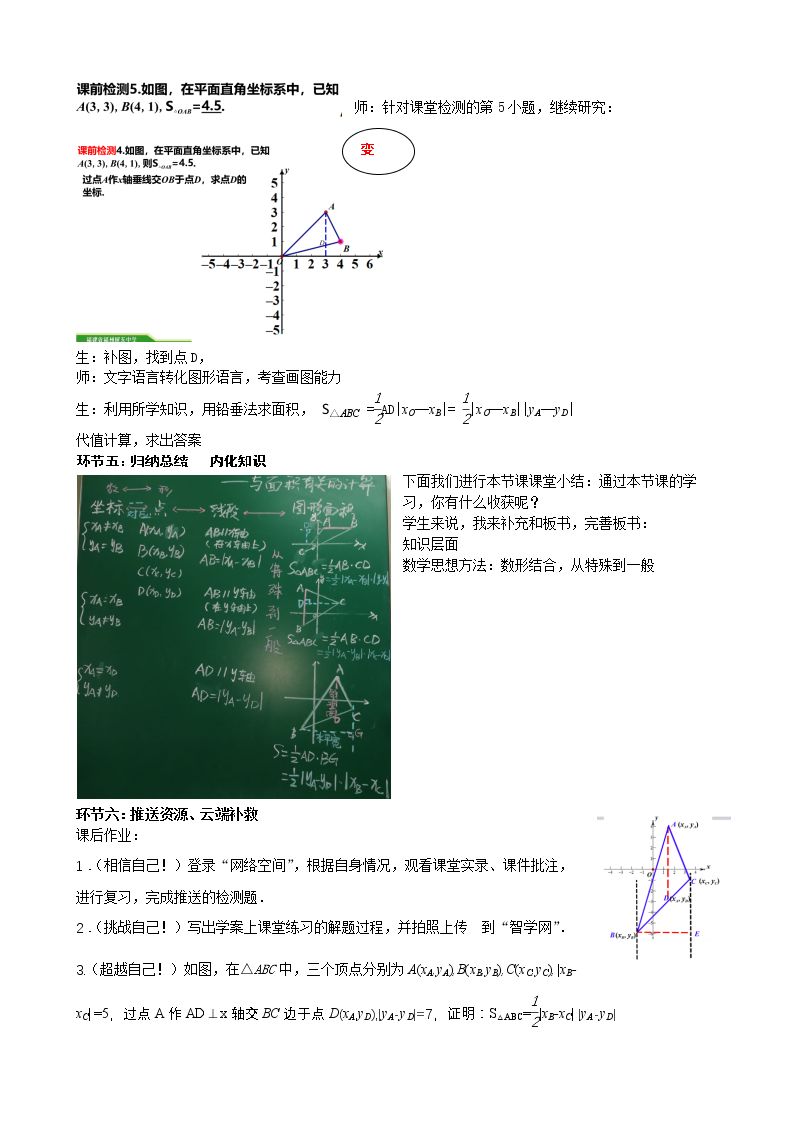 课前检测5.如图，在平面直角坐标系中，已知
A(3, 3), B(4, 1), S△OAB=4.5.
师：针对课堂检测的第 5 小题，继续研究：
变
课前检测4.如图，在平面直角坐标系中，已知
A(3, 3), B(4, 1), 则S△OAB=4.5.
过点A作x轴垂线交OB于点D，求点D的
坐标.
y
5
4
3
2
1
A
D
B
O
x
−5−4−3−2−1 1 2 3 4 5 6
−1
−2
−3
−4
−5
生：补图，找到点 D，
师：文字语言转化图形语言，考查画图能力
生：利用所学知识，用铅垂法求面积， S△ABC =1/2AD|xO—xB|= 1/2|xO—xB||yA—yD|
代值计算，求出答案
环节五：归纳总结 内化知识
下面我们进行本节课课堂小结：通过本节课的学
习，你有什么收获呢？
学生来说，我来补充和板书，完善板书：
知识层面
数学思想方法：数形结合，从特殊到一般
数 ⟷ 形 ——与面积有关的计算
坐标 ⟷ 点 ⟷ 线段 ⟷ 图形面积
xA≠xB
yA=yB
A(xA, yA)
B(xB, yB)
C(xC, yC)
D(xD, yD)
AB//x轴
(在x轴上)
AB=|xA-xB|
S△ABC=1/2AB·CD
xA=xB
yA≠yB
AB//y轴
(在y轴上)
AB=|yA-yB|
从特殊到一般
S△ABC=1/2AB·CD
=1/2|yA-yB|·|xC-xD|
xA=xD
yA≠yD
AD//y轴
AD=|yA-yD|
A
B
C
D
G
水平宽
S=1/2AD·BG
=1/2|yA-yD|·|xB-xC|
环节六：推送资源、云端补救
课后作业：
1．（相信自己！）登录“网络空间”，根据自身情况，观看课堂实录、课件批注，
进行复习，完成推送的检测题．
2．（挑战自己！）写出学案上课堂练习的解题过程，并拍照上传 到“智学网”．
3.（超越自己！）如图，在△ABC 中，三个顶点分别为 A(xA,yA), B(xB,yB), C(xC,yC), |xB-
xC|=5，过点 A 作 AD⊥x 轴交 BC 边于点 D(xA,yD),|yA-yD|=7，证明：S△ABC=1/2|xB-xC||yA-yD|
y
A (xA, yA)
x
O
C (xC, yC)
D (xA, yD)
B (xB, yB)
E